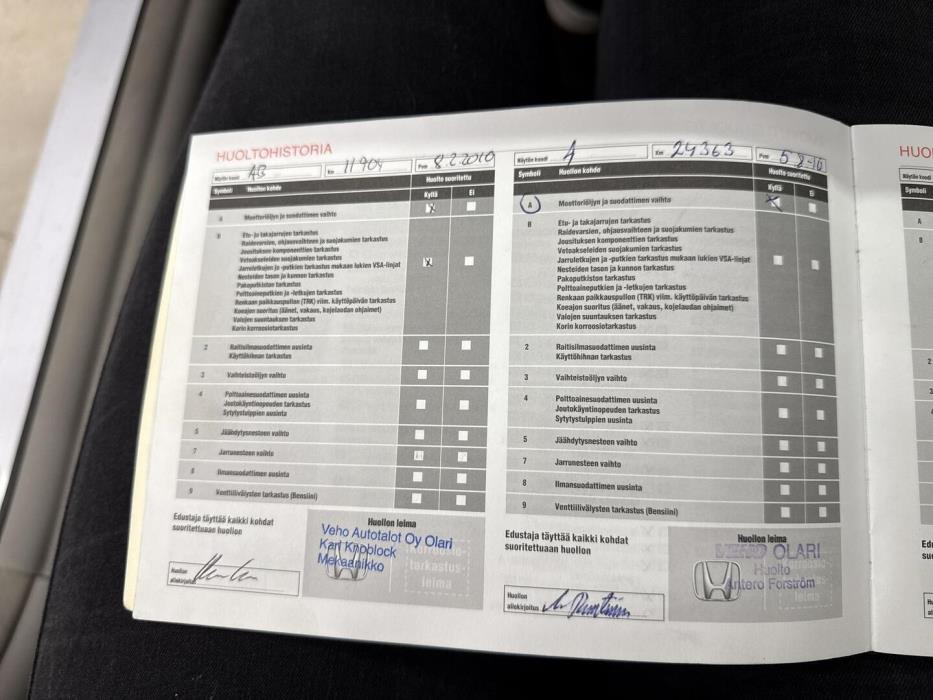 HUOLTOHISTORIA
Näytön koodi AB Km 11904 Pvm 8.2.2010
Symboli Huollon kohde Huolto suoritettu
Kyllä Ei
A Moottoriöljyn ja suodattimen vaihto
B Etu- ja takajarrujen tarkastus
Raidevarsien, ohjausvaihteen ja suojakumien tarkastus
Jousituksen komponenttien tarkastus
Vetoakseleiden suojakumien tarkastus
Jarruletkujen ja -putkien tarkastus mukaan lukien VSA-linjat
Nesteiden tason ja kunnon tarkastus
Pakoputkiston tarkastus
Polttoaineputkien ja -letkujen tarkastus
Renkaan paikkauspullon (TRK) viim. käyttöpäivän tarkastus
Koeajon suoritus (äänet, vakaus, kojelaudan ohjaimet)
Valojen suuntauksen tarkastus
Korin korroosiotarkastus
2 Raitisilmasuodattimen uusinta
Käyttöhihnan tarkastus
3 Vaihteistoöljyn vaihto
4 Polttoainesuodattimen uusinta
Joutokäyntinopeuden tarkastus
Sytytystulppien uusinta
5 Jäähdytysnesteen vaihto
7 Jarrunesteen vaihto
8 Ilmansuodattimen uusinta
9 Venttiilivälysten tarkastus (Bensiini)
Edustaja täyttää kaikki kohdat
suoritettuaan huollon
Huollon leima
Veho Autotalot Oy Olari
Kari Knoblock
Mekaanikko
Korroosio-
tarkastus-
leima
Huollon
allekirjoitus
Näytön koodi A Km 24363 Pvm 5.8-10
Symboli Huollon kohde Huolto suoritettu
Kyllä Ei
A Moottoriöljyn ja suodattimen vaihto
B Etu- ja takajarrujen tarkastus
Raidevarsien, ohjausvaihteen ja suojakumien tarkastus
Jousituksen komponenttien tarkastus
Vetoakseleiden suojakumien tarkastus
Jarruletkujen ja -putkien tarkastus mukaan lukien VSA-linjat
Nesteiden tason ja kunnon tarkastus
Pakoputkiston tarkastus
Polttoaineputkien ja -letkujen tarkastus
Renkaan paikkauspullon (TRK) viim. käyttöpäivän tarkastus
Koeajon suoritus (äänet, vakaus, kojelaudan ohjaimet)
Valojen suuntauksen tarkastus
Korin korroosiotarkastus
2 Raitisilmasuodattimen uusinta
Käyttöhihnan tarkastus
3 Vaihteistoöljyn vaihto
4 Polttoainesuodattimen uusinta
Joutokäyntinopeuden tarkastus
Sytytystulppien uusinta
5 Jäähdytysnesteen vaihto
7 Jarrunesteen vaihto
8 Ilmansuodattimen uusinta
9 Venttiilivälysten tarkastus (Bensiini)
Edustaja täyttää kaikki kohdat
suoritettuaan huollon
Huollon leima
VEHO OLARI
Huolto
Antero Forström
leima
Huollon
allekirjoitus
HUO
Näytön koodi
Symboli
A
B
2
3